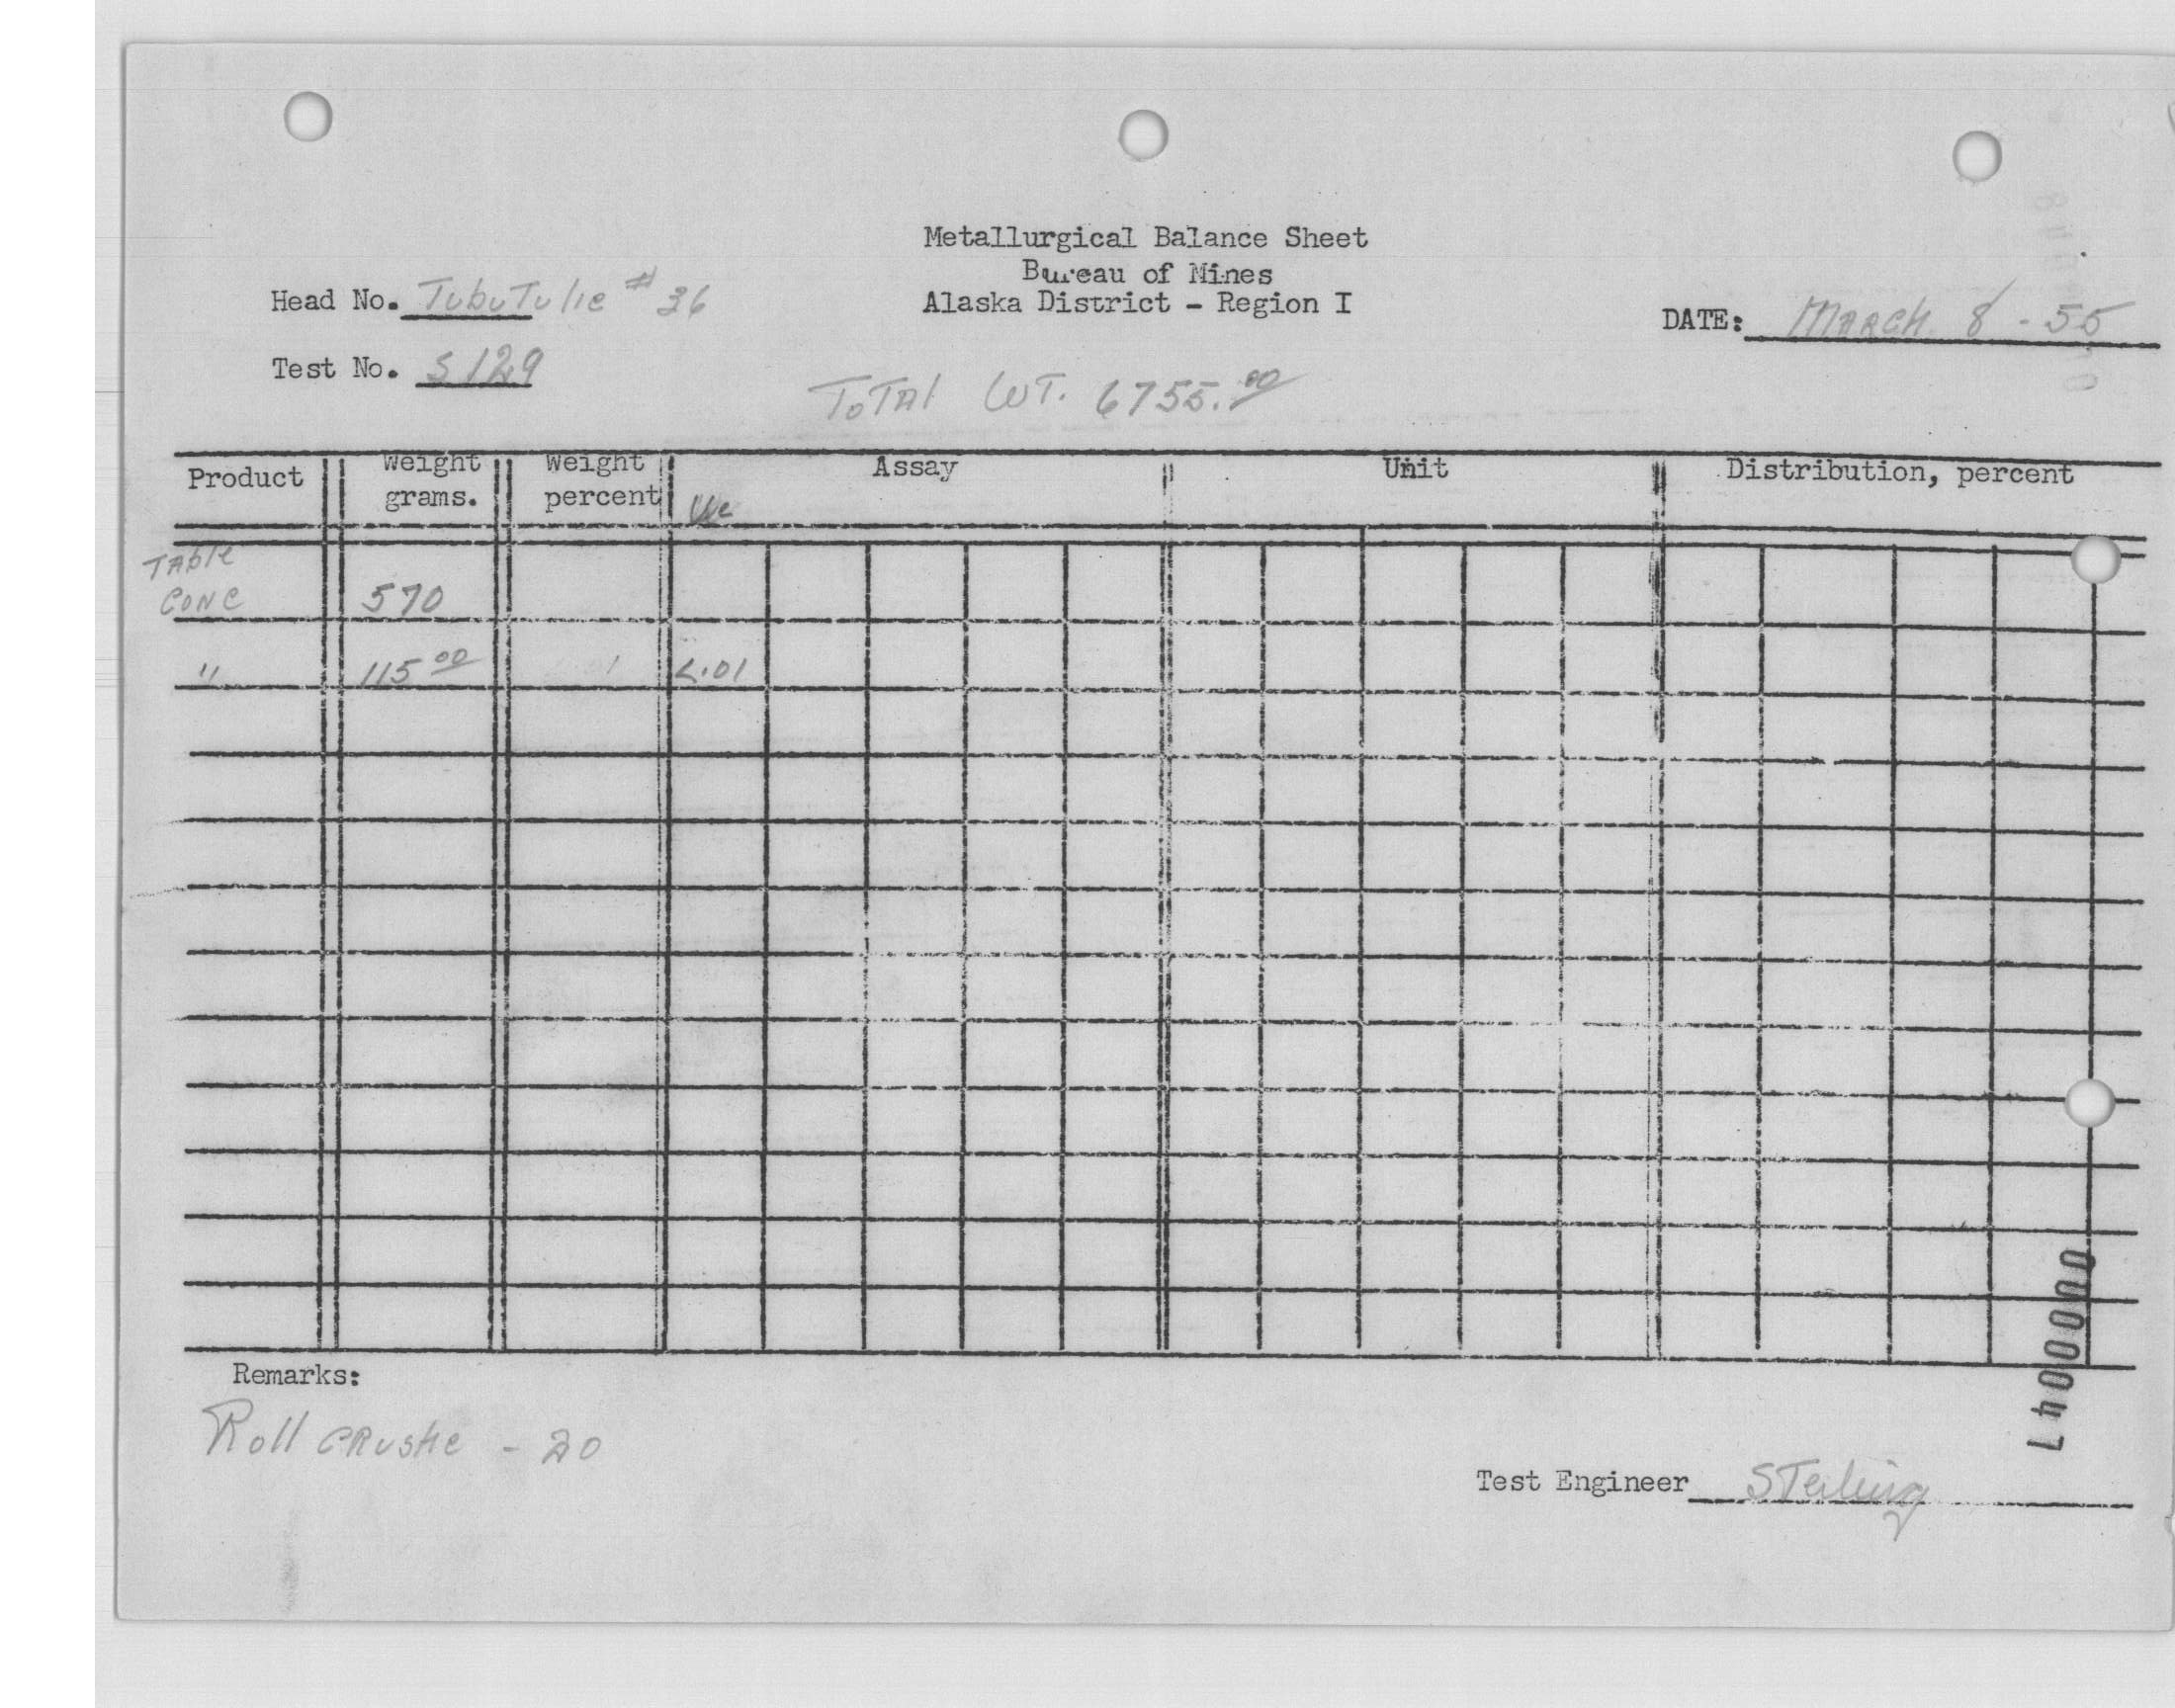 Metallurgical Balance Sheet
Bureau of Mines
Alaska District - Region I
Head No. TubuTulie # 36
DATE: MARCH 8 - 55
Test No. S129
ToTAl WT. 6755.00
Product Weight grams. Weight percent Assay Unit Distribution, percent
TAble
CONC 570
" 115 00 <.01
Remarks:
Roll CRUSHe - 20
Test Engineer STerling
0000047